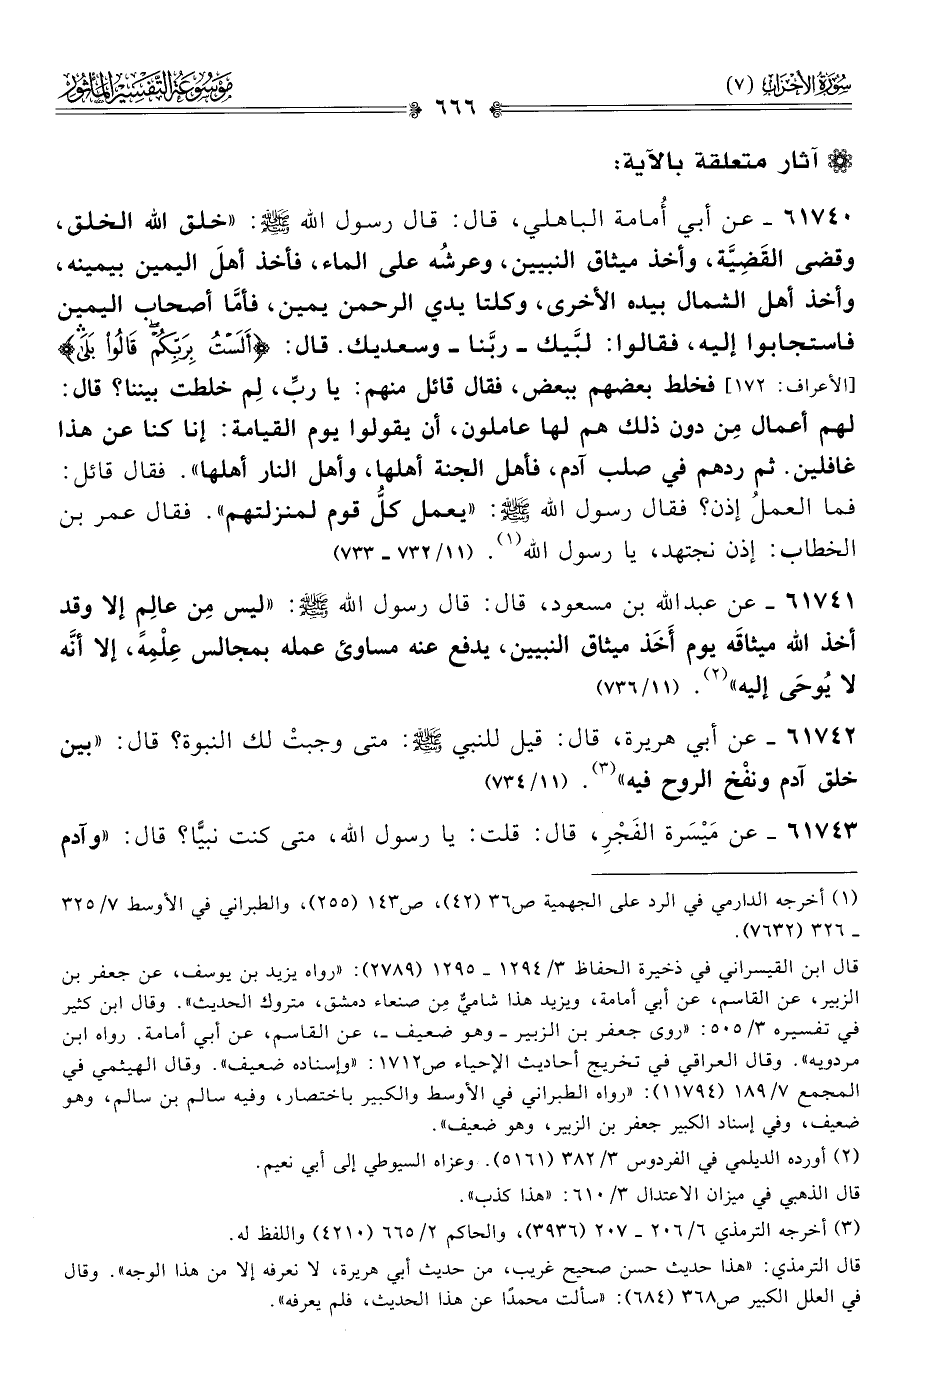 سُورَةُ الأَحْزَابِ (٧)
٦٦٦
مَوْسُوعَةُ التَّفْسِيْرِ المَأْثُورِ
آثار متعلقة بالآية:
٦١٧٤٠ ـ عن أبي أُمامة الباهلي، قال: قال رسول الله ﷺ: «خلق الله الخلق،
وقضى القَضِيَّة، وأخذ ميثاق النبيين، وعرشُه على الماء، فأخذ أهلَ اليمين بيمينه،
وأخذ أهل الشمال بيده الأخرى، وكلتا يدي الرحمن يمين، فأمَّا أصحاب اليمين
فاستجابوا إليه، فقالوا: لبَّيك ـ ربَّنا ـ وسعديك. قال: ﴿أَلَسْتُ بِرَبِّكُمْ قَالُوا۟ بَلَىٰ﴾
[الأعراف: ١٧٢] فخلط بعضهم ببعض، فقال قائل منهم: يا ربِّ، لِم خلطت بيننا؟ قال:
لهم أعمال مِن دون ذلك هم لها عاملون، أن يقولوا يوم القيامة: إنا كنا عن هذا
غافلين. ثم ردهم في صلب آدم، فأهل الجنة أهلها، وأهل النار أهلها». فقال قائل:
فما العملُ إذن؟ فقال رسول الله ﷺ: «يعمل كلُّ قوم لمنزلتهم». فقال عمر بن
الخطاب: إذن نجتهد، يا رسول الله(١). (١١/ ٧٣٢ ـ ٧٣٣)
٦١٧٤١ ـ عن عبدالله بن مسعود، قال: قال رسول الله ﷺ: «ليس مِن عالِم إلا وقد
أخذ الله ميثاقَه يوم أَخَذ ميثاق النبيين، يدفع عنه مساوئ عمله بمجالس عِلْمِه، إلا أنَّه
لا يُوحَى إليه»(٢). (١١/ ٧٣٦)
٦١٧٤٢ ـ عن أبي هريرة، قال: قيل للنبي ﷺ: متى وجبتْ لك النبوة؟ قال: «بين
خلق آدم ونفْخ الروح فيه»(٣). (١١/ ٧٣٤)
٦١٧٤٣ ـ عن مَيْسَرة الفَجْرِ، قال: قلت: يا رسول الله، متى كنت نبيًّا؟ قال: «وآدم
(١) أخرجه الدارمي في الرد على الجهمية ص٣٦ (٤٢)، ص١٤٣ (٢٥٥)، والطبراني في الأوسط ٧/ ٣٢٥
ـ ٣٢٦ (٧٦٣٢).
قال ابن القيسراني في ذخيرة الحفاظ ٣/ ١٢٩٤ ـ ١٢٩٥ (٢٧٨٩): «رواه يزيد بن يوسف، عن جعفر بن
الزبير، عن القاسم، عن أبي أمامة، ويزيد هذا شاميٌّ مِن صنعاء دمشق، متروك الحديث». وقال ابن كثير
في تفسيره ٣/ ٥٠٥: «روى جعفر بن الزبير ـ وهو ضعيف ـ، عن القاسم، عن أبي أمامة. رواه ابن
مردويه». وقال العراقي في تخريج أحاديث الإحياء ص١٧١٢: «وإسناده ضعيف». وقال الهيثمي في
المجمع ٧/ ١٨٩ (١١٧٩٤): «رواه الطبراني في الأوسط والكبير باختصار، وفيه سالم بن سالم، وهو
ضعيف، وفي إسناد الكبير جعفر بن الزبير، وهو ضعيف».
(٢) أورده الديلمي في الفردوس ٣/ ٣٨٢ (٥١٦١). وعزاه السيوطي إلى أبي نعيم.
قال الذهبي في ميزان الاعتدال ٣/ ٦١٠: «هذا كذب».
(٣) أخرجه الترمذي ٦/ ٢٠٦ ـ ٢٠٧ (٣٩٣٦)، والحاكم ٢/ ٦٦٥ (٤٢١٠) واللفظ له.
قال الترمذي: «هذا حديث حسن صحيح غريب، من حديث أبي هريرة، لا نعرفه إلا من هذا الوجه». وقال
في العلل الكبير ص٣٦٨ (٦٨٤): «سألت محمدًا عن هذا الحديث، فلم يعرفه».